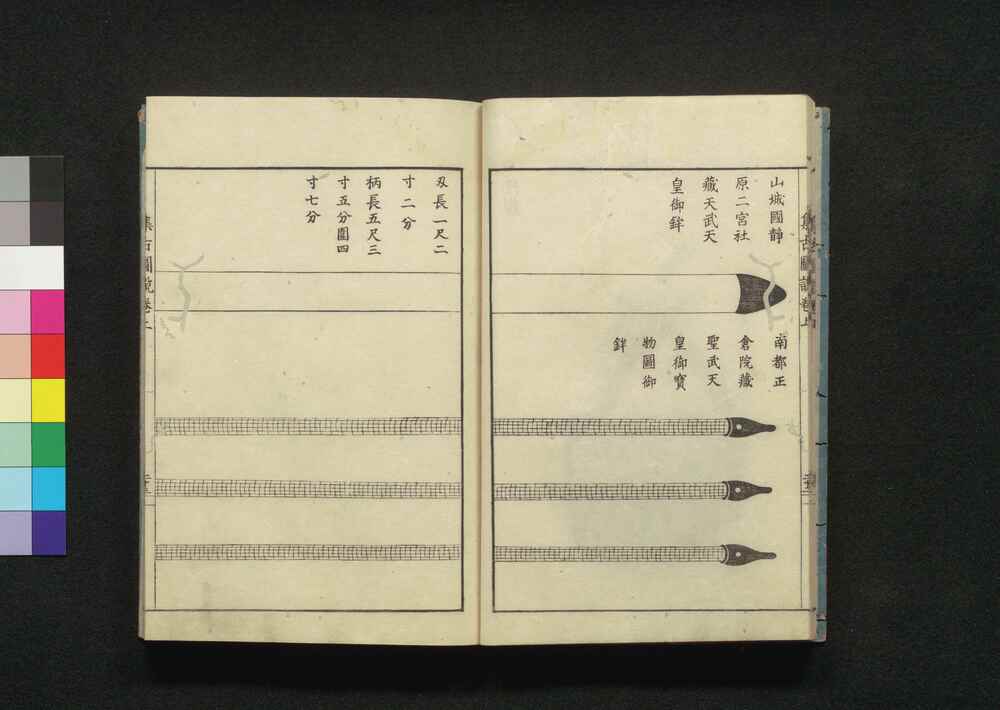 山城國靜
原二宮社
藏天武天
皇御鉾
南都正
倉院藏
聖武天
皇御寶
物圖御
鉾
刄長一尺二
寸二分
柄長五尺三
寸五分圍四
寸七分
集古圖說卷上